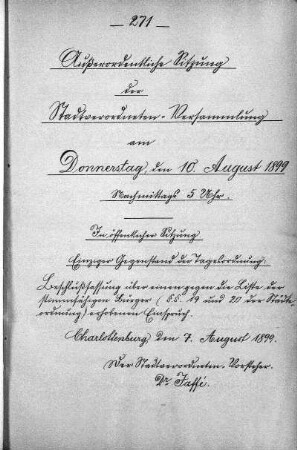 — 271 —
Außerordentliche Sitzung
der
Stadtverordneten-Versammlung
am
Donnerstag, den 10. August 1899
Nachmittags 5 Uhr.
In öffentlicher Sitzung
Einziger Gegenstand der Tagesordnung:
Beschlußfassung über einen gegen die Liste der
stimmfähigen Bürger (§.§. 19 und 20 der Städte-
ordnung) erhobenen Einspruch.
Charlottenburg, den 7. August 1899.
Der Stadtverordneten-Vorsteher.
Dr Jaffé.